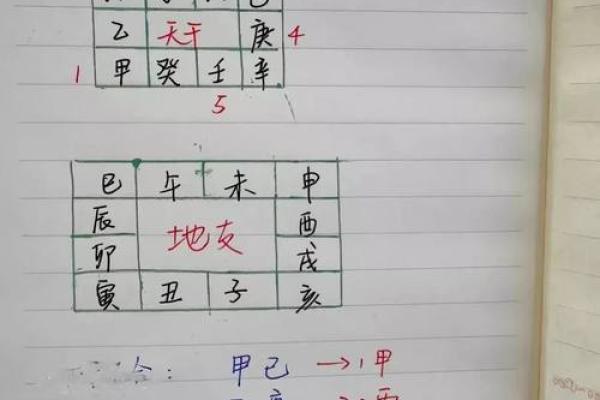 乙 天干 庚 4
1 甲 癸 壬 辛
5
巳 午 未 申
辰 酉
地支
卯 戌
寅 丑 子 亥
合: 甲己 →1甲